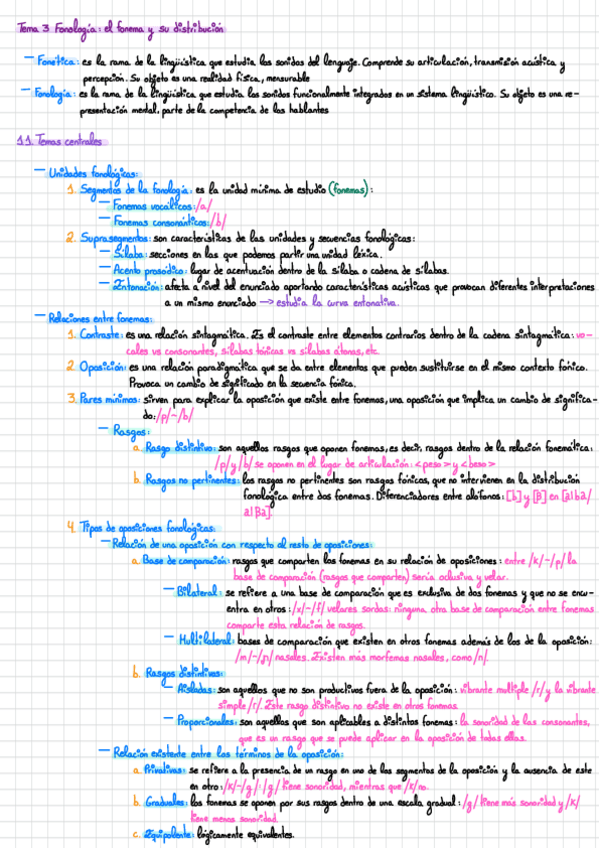 Tema 3 Fonología: el fonema y su distribución
— Fonética: es la rama de la lingüística que estudia los sonidos del lenguaje. Comprende su articulación, transmisión acústica y
percepción. Su objeto es una realidad física, mensurable
— Fonología: es la rama de la lingüística que estudia los sonidos funcionalmente integrados en un sistema lingüístico. Su objeto es una re-
presentación mental, parte de la competencia de los hablantes
1.1. Temas centrales
— Unidades fonológicas:
1. Segmentos de la fonología: es la unidad mínima de estudio (fonemas):
— Fonemas vocálicos: /a/
— Fonemas consonánticos: /b/
2. Suprasegmentos: son características de las unidades y secuencias fonológicas:
— Sílaba: secciones en las que podemos partir una unidad léxica.
— Acento prosódico: lugar de acentuación dentro de la sílaba o cadena de sílabas.
— Entonación: afecta a nivel del enunciado aportando características acústicas que provocan diferentes interpretaciones
a un mismo enunciado → estudia la curva entonativa.
— Relaciones entre fonemas:
1. Contraste: es una relación sintagmática. Es el contraste entre elementos contrarios dentro de la cadena sintagmática: vo-
cales vs consonantes, sílabas tónicas vs sílabas átonas, etc.
2. Oposición: es una relación paradigmática que se da entre elementos que pueden sustituirse en el mismo contexto fónico.
Provoca un cambio de significado en la secuencia fónica.
3. Pares mínimos: sirven para explicar la oposición que existe entre fonemas, una oposición que implica un cambio de significa-
do: /p/~/b/
— Rasgos:
a. Rasgo distintivo: son aquellos rasgos que oponen fonemas, es decir, rasgos dentro de la relación fonemática:
/p/ y /b/ se oponen en el lugar de articulación: <peso> y <beso>
b. Rasgos no pertinentes: los rasgos no pertinentes son rasgos fónicos, que no intervienen en la distribución
fonológica entre dos fonemas. Diferenciadores entre alófonos: [b] y [β] en [alba/
alβa].
4. Tipos de oposiciones fonológicas:
— Relación de una oposición con respecto al resto de oposiciones:
a. Base de comparación: rasgos que comparten los fonemas en su relación de oposiciones: entre /k/-/p/ la
base de comparación (rasgos que comparten) sería oclusiva y velar.
— Bilateral: se refiere a una base de comparación que es exclusiva de dos fonemas y que no se encu-
entra en otros: /x/-/f/ velares sordas: ninguna otra base de comparación entre fonemas
comparte esta relación de rasgos.
— Multilateral: bases de comparación que existen en otros fonemas además de los de la oposición:
/m/-/ɲ/ nasales. Existen más morfemas nasales, como /n/.
b. Rasgos distintivos:
— Aisladas: son aquellos que no son productivos fuera de la oposición: vibrante multiple /r/ y la vibrante
simple /ɾ/. Este rasgo distintivo no existe en otros fonemas.
— Proporcionales: son aquellas que son aplicables a distintos fonemas: la sonoridad de las consonantes,
que es un rasgo que se puede aplicar en la oposición de todas ellas.
— Relación existente entre los términos de la oposición:
a. Privativas: se refiere a la presencia de un rasgo en uno de los segmentos de la oposición y la ausencia de este
en otro: /k/-/g/: /g/ tiene sonoridad, mientras que /k/ no.
b. Graduales: los fonemas se oponen por sus rasgos dentro de una escala gradual: /g/ tiene más sonoridad y /k/
tiene menos sonoridad.
c. Equipolente: lógicamente equivalentes.